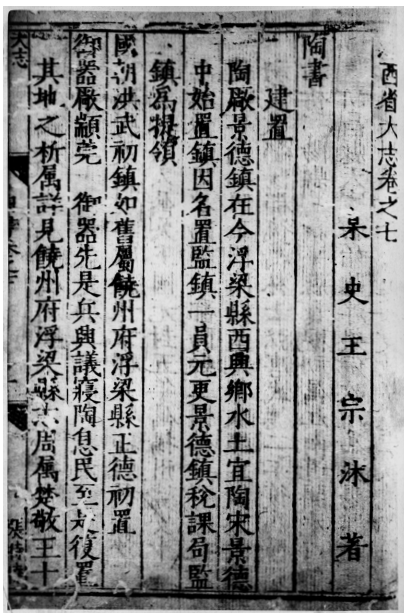 西省大志卷之七
臬史王宗沐著
陶書
建置
陶廠景德鎮在今浮梁縣西興鄉水土宜陶宋景德
中始置鎮因名置監鎮一員元更景德鎮稅課局監
鎮爲提領
國朝洪武初鎮如舊屬饒州府浮梁縣正德初置
御器廠顓莞　御器先是兵興議寢陶息民至是復置
其地之析属詳見饒州府浮梁縣志周属楚敬王十
大志